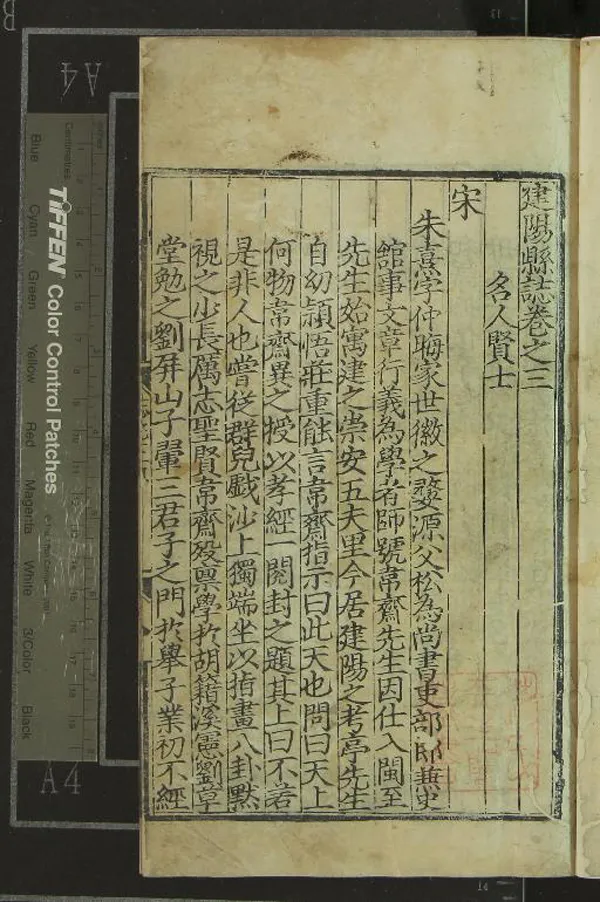 建陽縣誌卷之三
名人賢士
宋
朱熹字仲晦家世徽之婺源父松為尚書吏部郎兼史
舘事文章行義為學者師號韋齋先生因仕入閩至
先生始寓建之崇安五夫里今居建陽之考亭先生
自幼頴悟莊重能言韋齋指示曰此天也問曰天上
何物韋齋異之授以孝經一閱封之題其上曰不若
是非人也嘗從群兒戲沙上獨端坐以指畫八卦默
視之少長厲志聖賢韋齋歿稟學於胡籍溪憲劉草
堂勉之劉屏山子翬三君子之門於舉子業初不經
A4
B
TIFFEN Color Control Patches
Centimetres
Blue
Cyan
Green
Yellow
Red
Magenta
White
3/Color
Black
A4
14